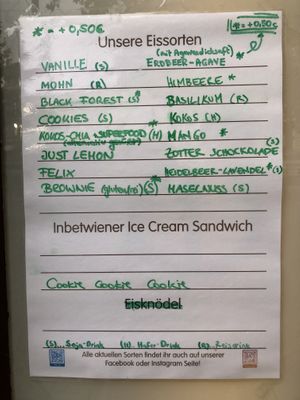 * = + 0,50€
1/4 = +0,50€
Unsere Eissorten
(mit Agavendicksaft)
VANILLE (S)
ERDBEER-AGAVE
MOHN (R)
HIMBEERE *
BLACK FOREST (S) *
BASILIKUM (R)
COOKIES (S)
KOKOS (H)
KOKOS-CHIA SUPERFOOD (H)
MANGO *
JUST LEMON
ZOTTER SCHOKOLADE (S)
FELIX
HEIDELBEER-LAVENDEL * (S)
BROWNIE (glutenfrei) (S) *
HASELNUSS (S)
Inbetwiener Ice Cream Sandwich
Cookie Cookie Cookie
Eisknödel
(S)...Soja-Drink (H)...Hafer-Drink (R)...Reisdrink
Alle aktuellen Sorten findet ihr auch auf unserer
Facebook oder Instagram Seite!